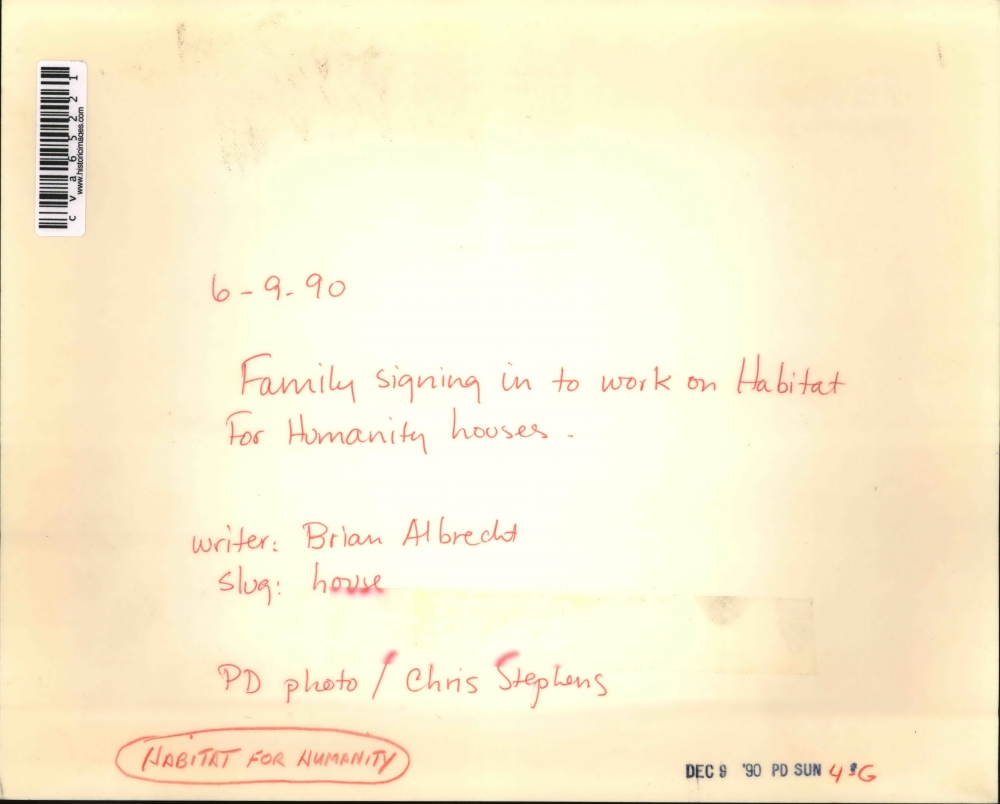 cva65221
www.historicimages.com
6-9-90
Family signing in to work on Habitat
For Humanity houses.
writer: Brian Albrecht
slug: house
PD photo / Chris Stephens
HABITAT FOR HUMANITY
DEC 9 '90 PD SUN 4 G